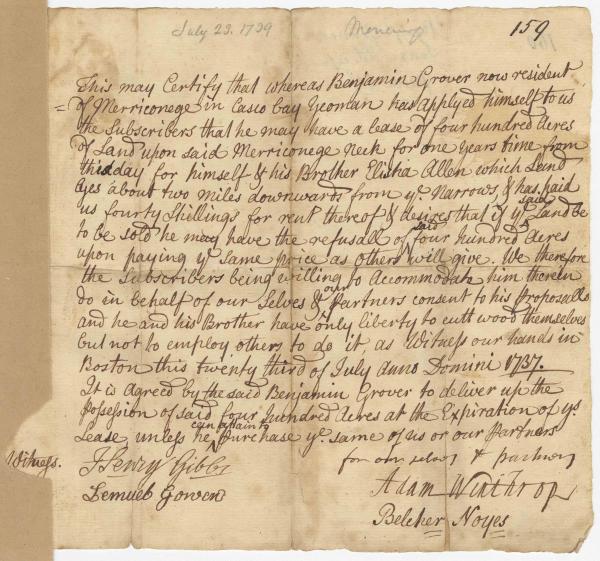 July 23. 1739
Merriconeg
159
This may Certify that whereas Benjamin Grover now resident
of Merriconege in Casco bay Yeoman has applyed himself to us
the Subscribers that he may have a lease of four hundred Acres
of Land upon said Merriconege Neck for one Years time from
this day for himself & his Brother Elisha Allen which Land
lyes about two Miles downwards from ye Narrows, & has paid
us fourty Shillings for rent thereof & desires that if ye said Land be
to be sold he may have the refusall of said four hundred Acres
upon paying ye same price as others will give. We therefore
the Subscribers being willing to Accommodate him therein
do in behalf of our Selves & our Partners consent to his Proposalls
and he and his Brother have only liberty to cutt wood themselves
but not to employ others to do it, as Witness our hands in
Boston this twenty third of July anno Domini 1737.
It is agreed by the said Benjamin Grover to deliver up the
Possession of said four hundred Acres at the Expiration of ys
Lease, unless he can attain to Purchase ye same of us or our Partners
Witness.
Henry Gibbs
Lemuel Gowen
for our selves & partners
Adam Winthrop
Belcher Noyes